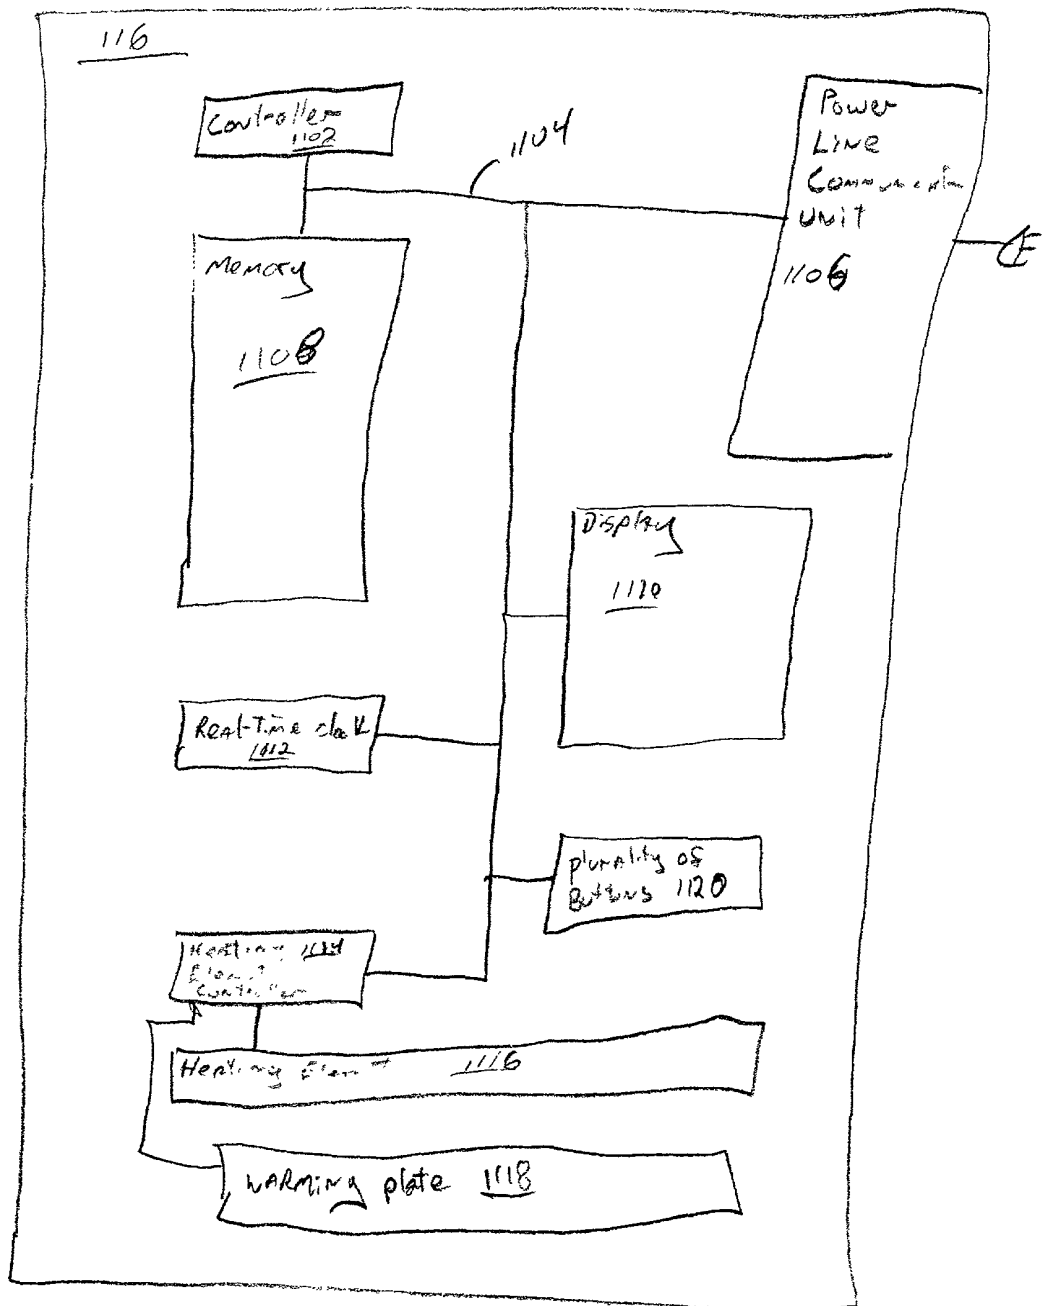 116
Controller
1102
1104
Power
Line
UNIT
1106
Memory
1108
Display
1110
Real-Time clock
1112
plurality of
Buttons 1120
Heating 1114
Element
Controller
Heating Element 1116
WARMing plate 1118